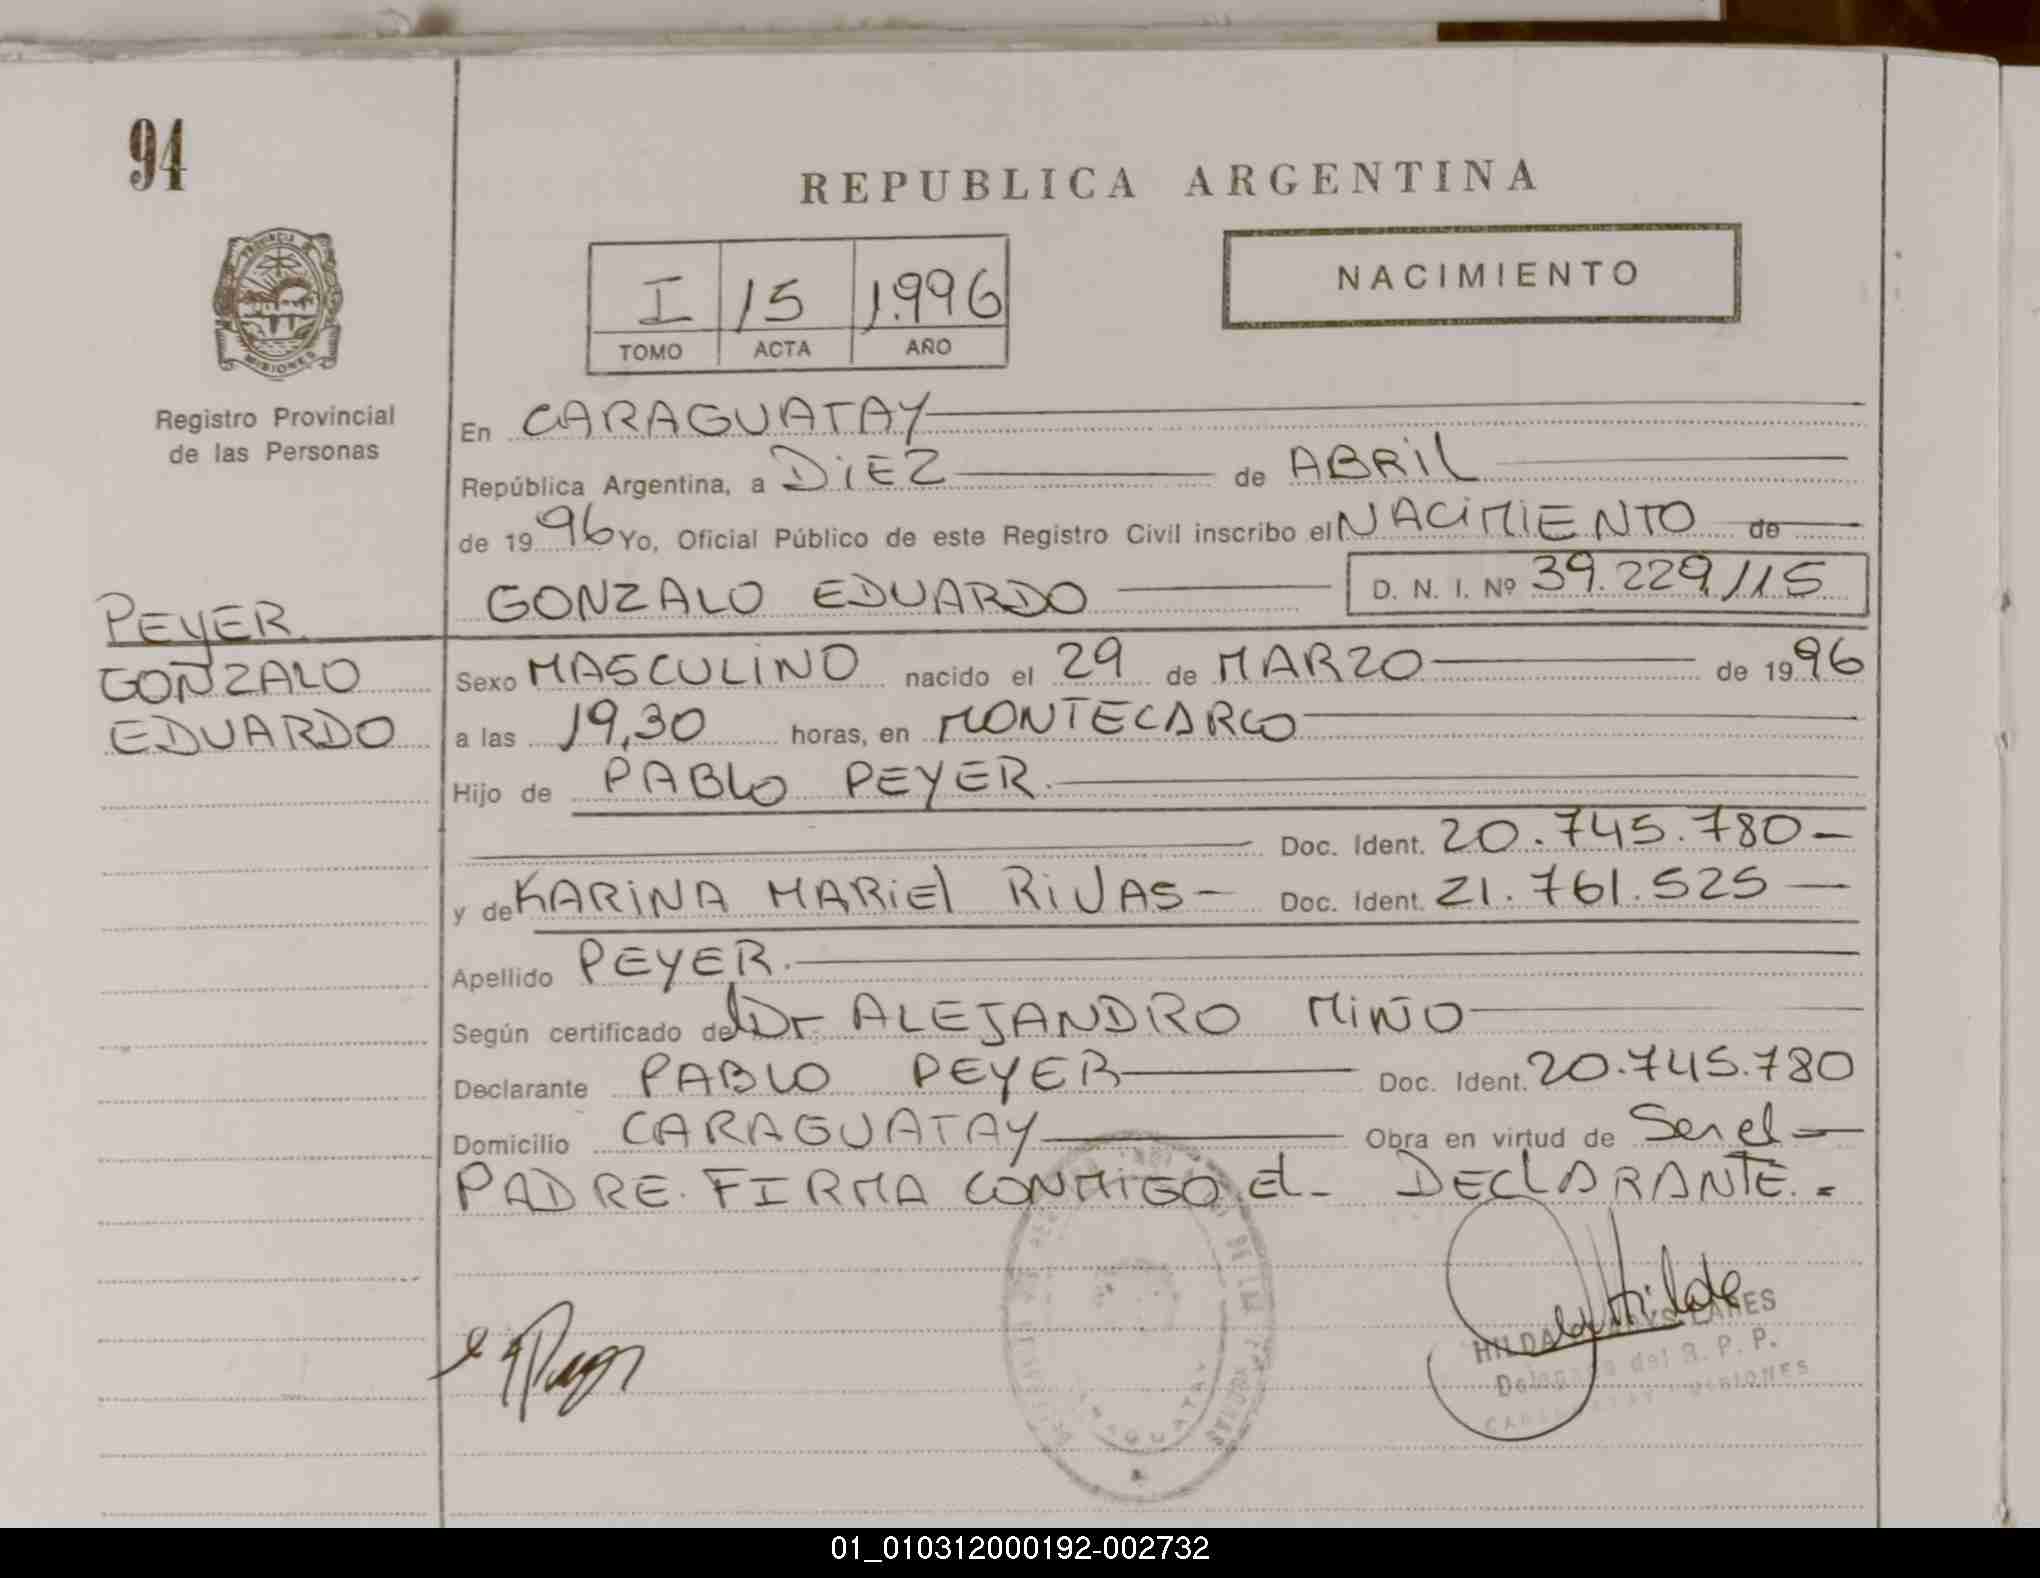 94
REPUBLICA ARGENTINA
PROVINCIA DE
MISIONES
I 15 1.996
TOMO ACTA AÑO
NACIMIENTO
Registro Provincial
de las Personas
En CARAGUATAY
República Argentina, a DIEZ de ABRIL
de 1996 Yo, Oficial Público de este Registro Civil inscribo el NACIMIENTO de
GONZALO EDUARDO D. N. I. Nº 39.229.115
PEYER
GONZALO
EDUARDO
Sexo MASCULINO nacido el 29 de MARZO de 1996
a las 19,30 horas, en MONTECARLO
Hijo de PABLO PEYER.
Doc. Ident. 20.745.780-
y de KARINA MARIEL RIVAS- Doc. Ident. 21.761.525
Apellido PEYER.
Según certificado del Dr. ALEJANDRO MIÑO
Declarante PABLO PEYER Doc. Ident. 20.745.780
Domicilio CARAGUATAY Obra en virtud de Ser el
PADRE. FIRMA CONMIGO El- DECLARANTE.-
HILDA LANES
Delegada del R. P. P.
CARAGUATAY MISIONES
01_010312000192-002732